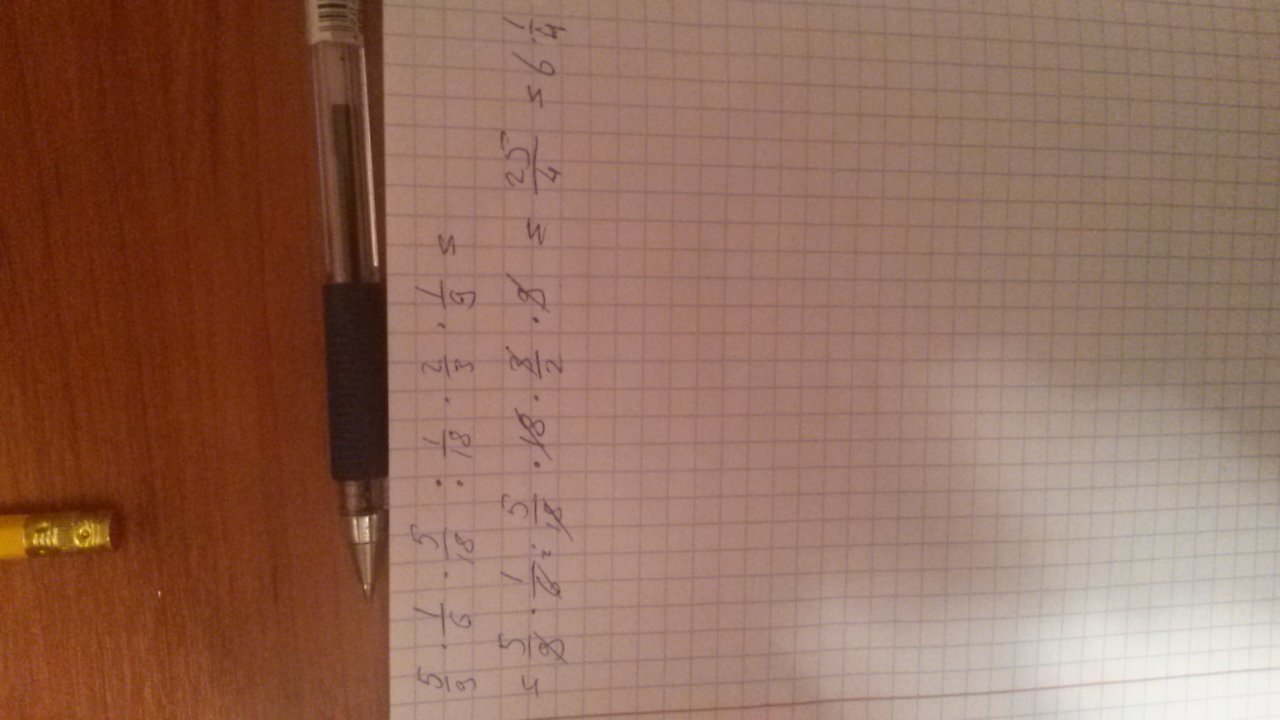 5/9 · 1/6 · 5/18 : 1/18 · 2/3 · 1/9 =
= 5/9 · 1/6₂ · 5/18 · 18 · 3/2 · 9 = 25/4 = 6 1/4